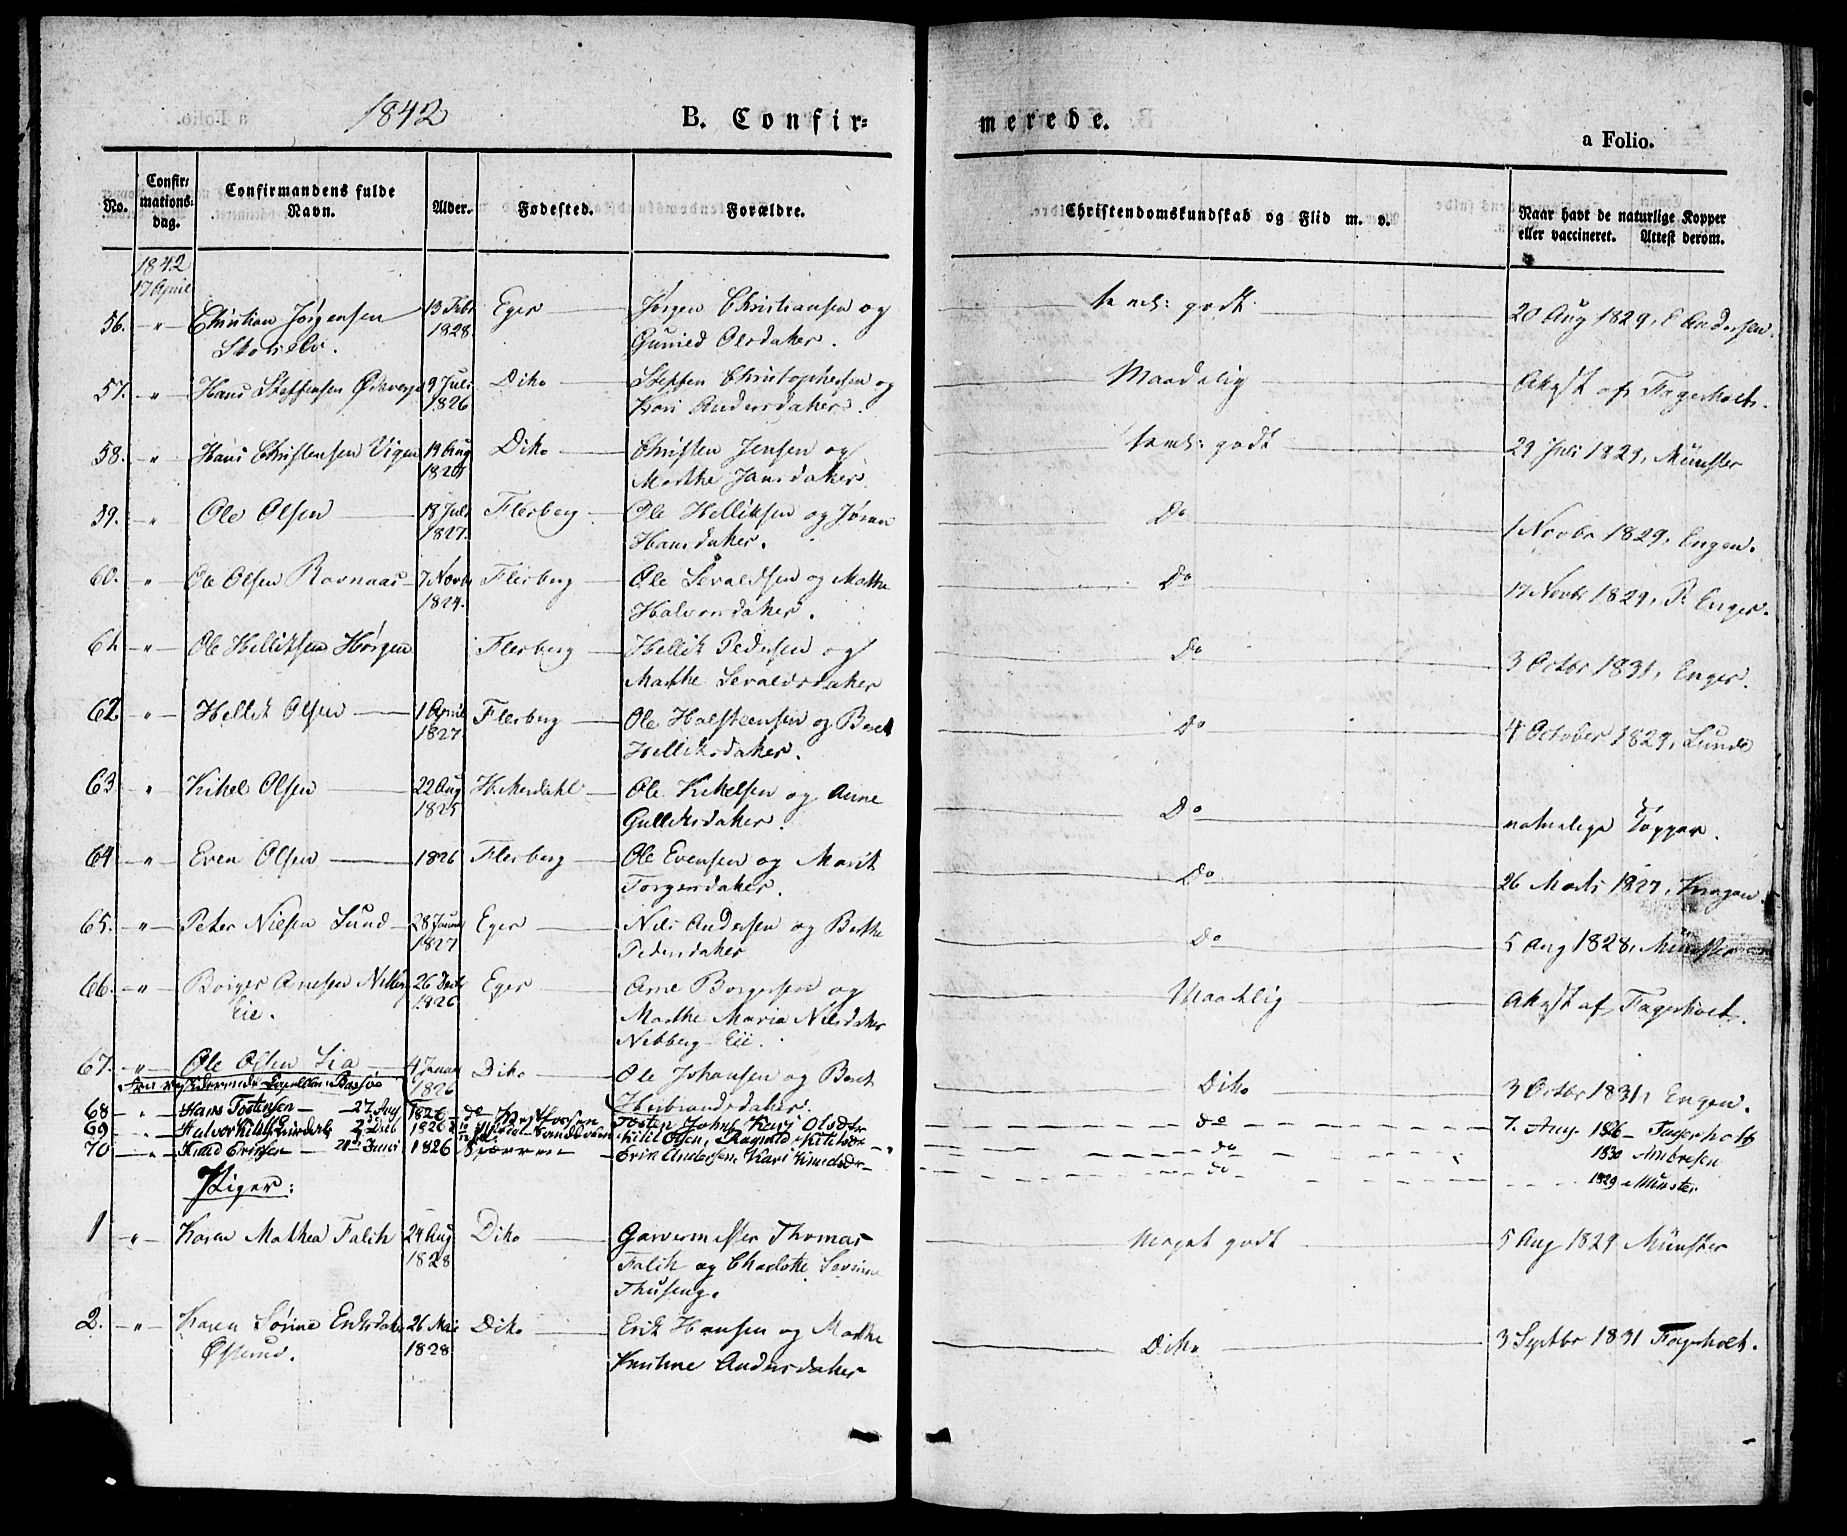 1842
B. Confir= merede.
a Folio.
No. Confir= mations= dag. Confirmandens fulde Navn. Alder. Fødested. Forældre. Christendomskundskab og Flid m. v. Naar havt de naturlige Kopper eller vaccineret. Attest derom.
1842
17 April
56. " Christian Jørgensen 13 Febr 1828 Eger Jørgen Christiansen og temel: godt 20 Aug 1829, E Andersen.
57. " Hans Steffensen 9 Juli 1826 Dito Steffen Christophersen og Kari Andersdatter. Maadelig Attest af Fagerholt.
58. " Hans Christensen Vigen 19 Aug Dito Christen Jensen og Marthe Jansdatter. temel: godt 29 Juli 1829, Münster
59. " Ole Olsen 18 Juli 1827. Flesberg Ole Helliksen og Jøran Hansdatter. Do 1 Novbr 1829, Engen.
60. " Ole Olsen Ravnaas 7 Novbr 1824. Flesberg Ole Sevaldsen og Marthe Halvorsdatter. Do 17 Novbr 1829, P. Enger.
61. " Ole Helliksen Flesberg Hellik Pedersen og Marthe Sevaldsdatter Do 3 Octbr 1831, Enger.
62. " Hellik Olsen 1 April 1827 Flesberg Ole Halsteensen og Berit Helliksdatter. Do 4 October 1829, Lunde
63. " Kittel Olsen 22 Aug 1825 Hitterdahl Ole Kittelsen og Anne Gulliksdatter. Do naturlige Kopper.
64. " Even Olsen 1826 Flesberg Ole Evensen og Marit Torgersdatter. Do 26 Marts 1827, Kragen
65. " Peter Nielsen Lund 28 Januar 1827 Eger Niels Andersen og Berthe Pedersdatter Do 5 Aug 1828, Münster
66. " Borger Arnesen Nibberg Eie. 26 Decbr 1826 Eger Arne Borgersen og Marthe Maria Nilsdatter Nebberg Eie. Maadelig Attest af Fagerholt.
67. " Ole Olsen Lia 4 Januar 1826 Dito Ole Johansen og Berit Dito 3 Octbr 1831, Engen.
68 " Hans Tostensen 27. Aug 1826 do Tosten Johns. Kari Olsdtr do 7. Aug. 1826 Fagerholt
69 " Halvor Kittils. 1826 Kittil Olsen, Ragnild Kittilsdr do 1830 Ambresen
70 " Knud Eriksen 21 Juni 1826 Erik Andersen, Kari Knudsdr do 1829 Münster
Piger:
1 " Karen Mathea Falch 24 Aug 1828 Dito Garvermester Thomas Falch og Charlotte Severine Meget godt 5 Aug 1829 Münster
2. " Karen Sørine Eriksdatter 26 Mai 1828 Dito Erik Hansen og Marthe Kristine Andersdatter Dito 3 Septbr 1831 Fagerholt.